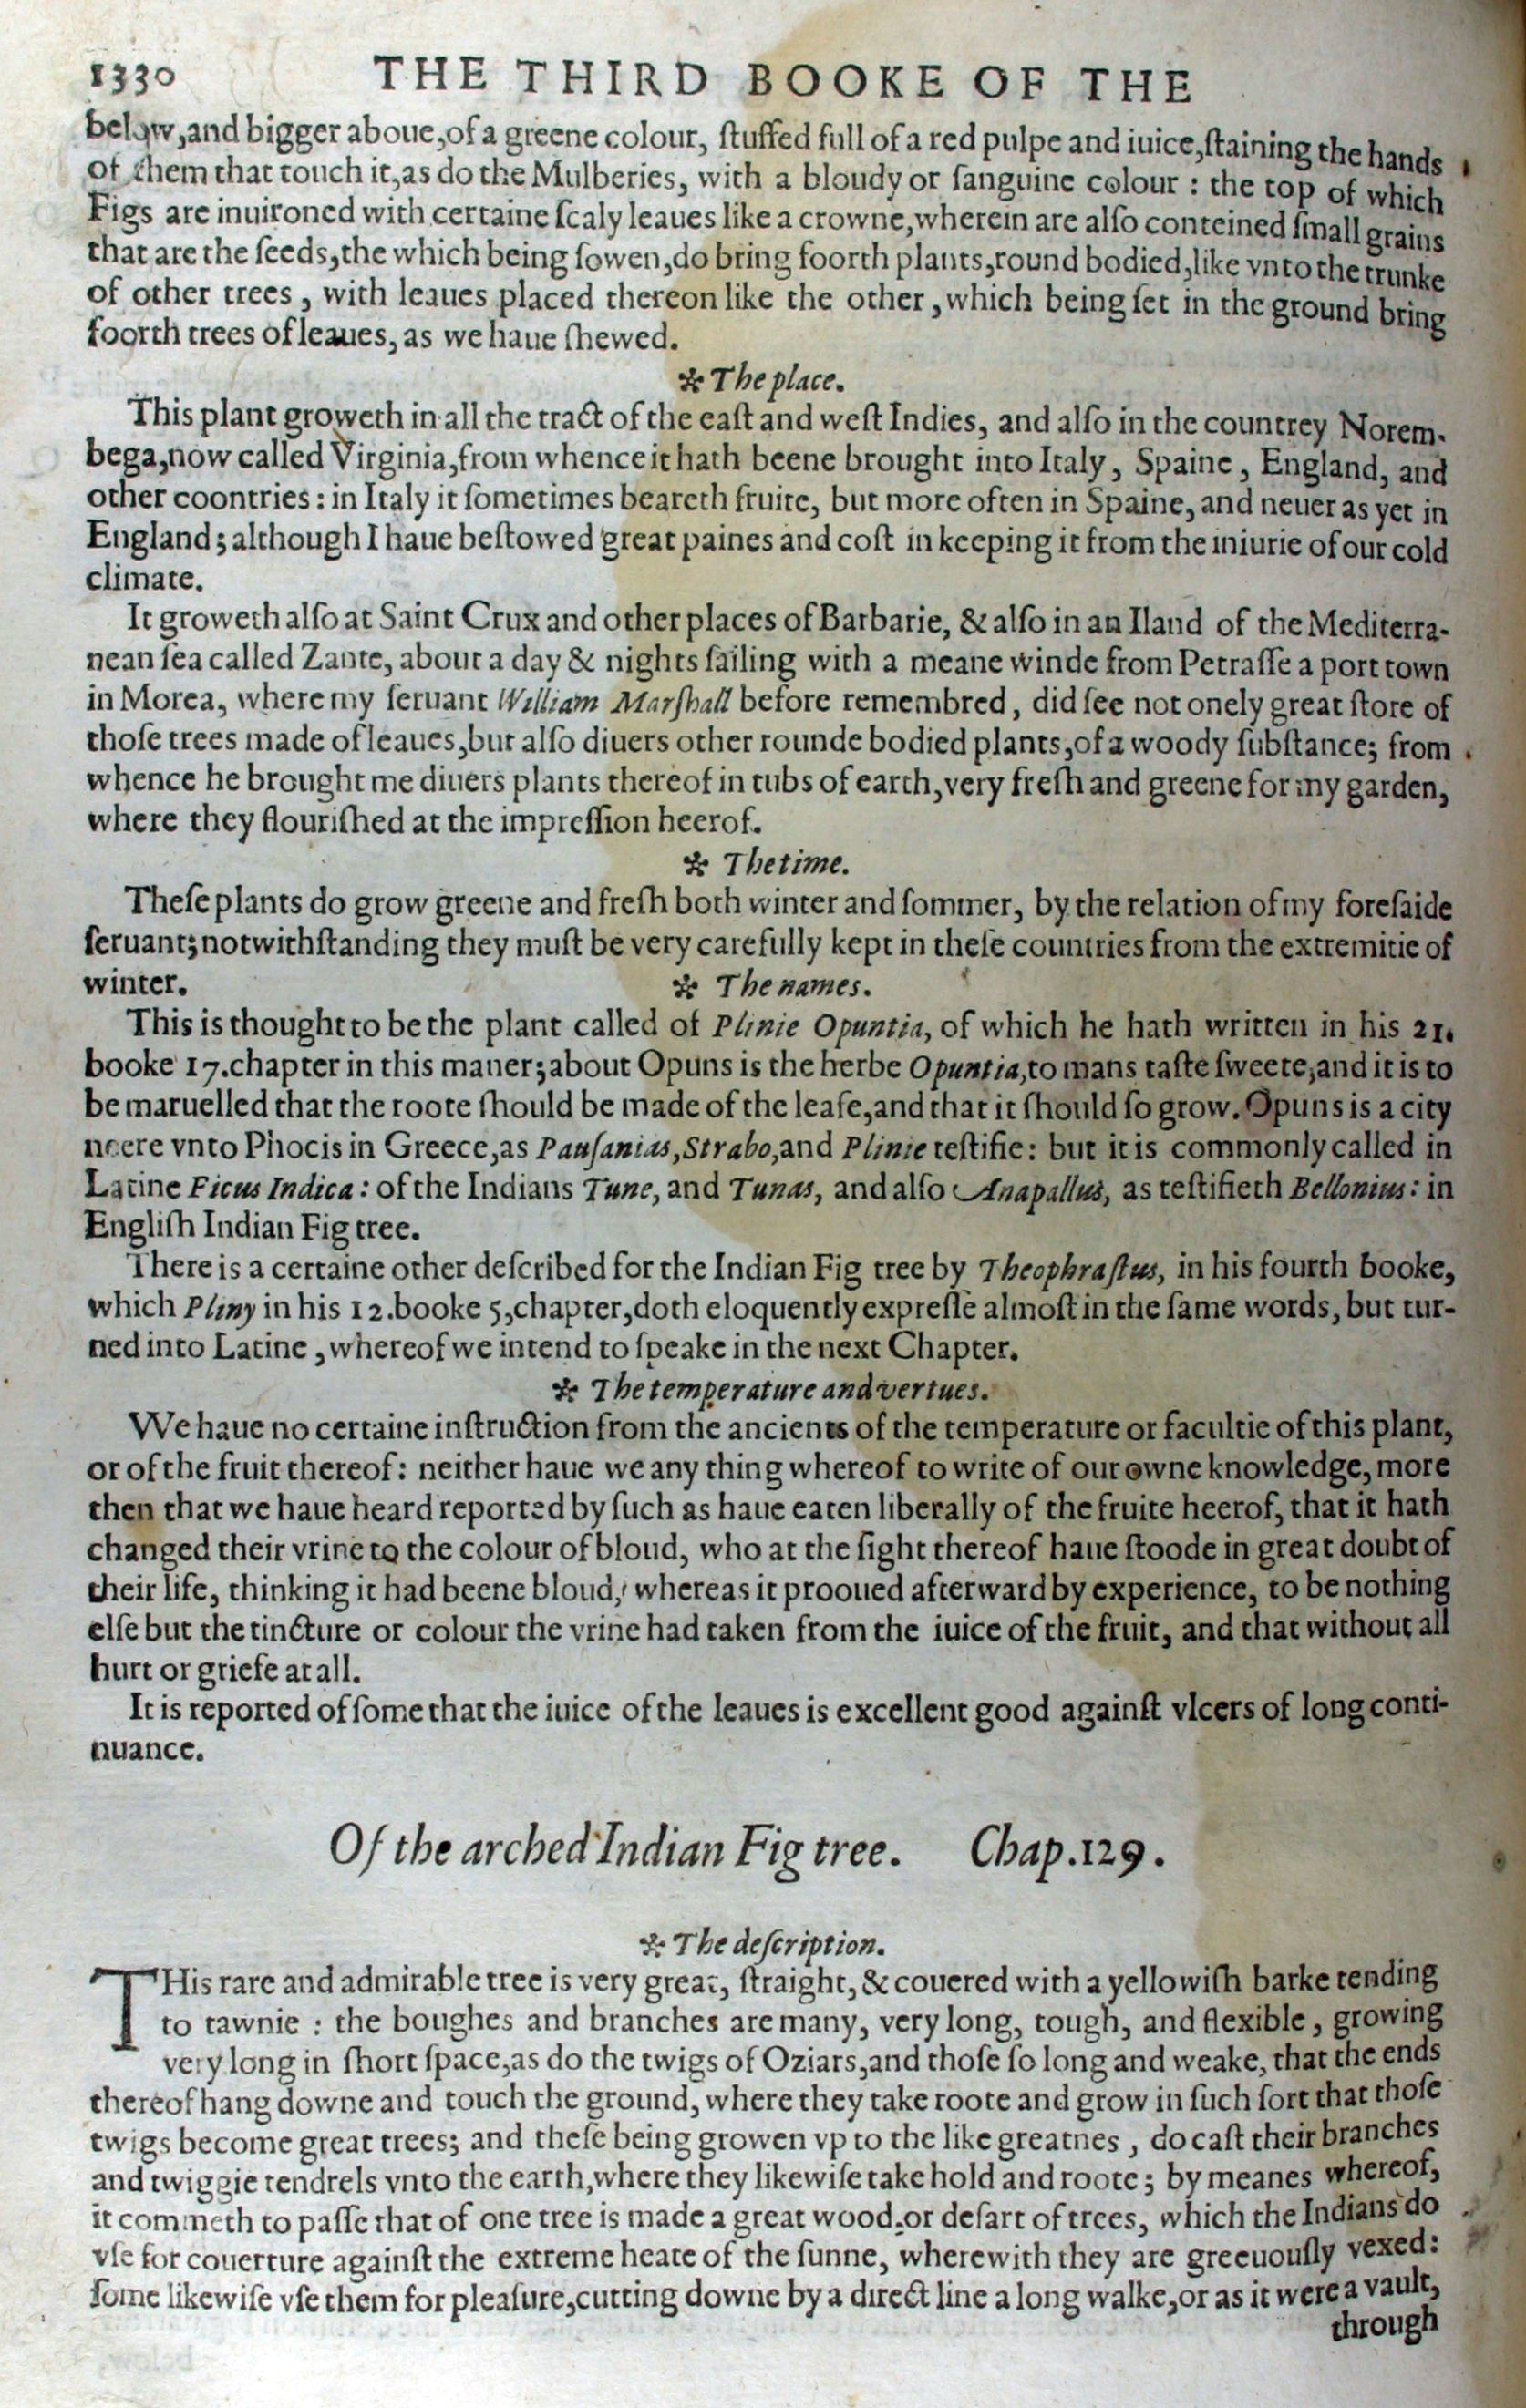 1330 THE THIRD BOOKE OF THE
below,and bigger aboue,of a greene colour, ſtuffed full of a red pulpe and iuice,ſtaining the hands
of them that touch it,as do the Mulberies, with a bloudy or ſanguine colour : the top of which
Figs are inuironed with certaine ſcaly leaues like a crowne,wherein are alſo conteined ſmall grains
that are the ſeeds,the which being ſowen,do bring foorth plants,round bodied,like vnto the trunke
of other trees , with leaues placed thereon like the other ,which being ſet in the ground bring
foorth trees of leaues, as we haue ſhewed.
✲ The place.
This plant groweth in all the tract of the eaſt and weſt Indies, and alſo in the countrey Norem-
bega,now called Virginia,from whence it hath beene brought into Italy , Spaine , England, and
other coontries : in Italy it ſometimes beareth fruite, but more often in Spaine, and neuer as yet in
England ; although I haue beſtowed great paines and coſt in keeping it from the iniurie of our cold
climate.
It groweth alſo at Saint Crux and other places of Barbarie, & alſo in an Iland of the Mediterra-
nean ſea called Zante, about a day & nights ſailing with a meane winde from Petraſſe a port town
in Morea, where my ſeruant William Marſhall before remembred , did ſee not onely great ſtore of
thoſe trees made of leaues,but alſo diuers other rounde bodied plants,of a woody ſubſtance; from
whence he brought me diuers plants thereof in tubs of earth,very freſh and greene for my garden,
where they flouriſhed at the impreſſion heerof.
✲ The time.
Theſe plants do grow greene and freſh both winter and ſommer, by the relation of my foreſaide
ſeruant;notwithſtanding they muſt be very carefully kept in theſe countries from the extremitie of
winter. ✲ The names.
This is thought to be the plant called of Plinie Opuntia, of which he hath written in his 21.
booke 17.chapter in this maner;about Opuns is the herbe Opuntia,to mans taſte ſweete,and it is to
be maruelled that the roote ſhould be made of the leafe,and that it ſhould ſo grow. Opuns is a city
neere vnto Phocis in Greece,as Pauſanias,Strabo,and Plinie teſtifie: but it is commonly called in
Latine Ficus Indica : of the Indians Tune, and Tunas, and alſo Anapallus, as teſtifieth Bellonius : in
Engliſh Indian Fig tree.
There is a certaine other deſcribed for the Indian Fig tree by Theophraſtus, in his fourth booke,
which Pliny in his 12.booke 5,chapter,doth eloquently expreſſe almoſt in the ſame words, but tur-
ned into Latine , whereof we intend to ſpeake in the next Chapter.
✲ The temperature and vertues.
We haue no certaine inſtruction from the ancients of the temperature or facultie of this plant,
or of the fruit thereof : neither haue we any thing whereof to write of our owne knowledge, more
then that we haue heard reported by ſuch as haue eaten liberally of the fruite heerof, that it hath
changed their vrine to the colour of bloud, who at the ſight thereof haue ſtoode in great doubt of
their life, thinking it had beene bloud, whereas it prooued afterward by experience, to be nothing
elſe but the tincture or colour the vrine had taken from the iuice of the fruit, and that without all
hurt or griefe at all.
It is reported of ſome that the iuice of the leaues is excellent good againſt vlcers of long conti-
nuance.
Of the arched Indian Fig tree. Chap.129.
✲ The deſcription.
THis rare and admirable tree is very great, ſtraight, & couered with a yellowiſh barke tending
to tawnie : the boughes and branches are many, very long, tough, and flexible , growing
very long in ſhort ſpace,as do the twigs of Oziars,and thoſe ſo long and weake, that the ends
thereof hang downe and touch the ground, where they take roote and grow in ſuch ſort that thoſe
twigs become great trees; and theſe being growen vp to the like greatnes , do caſt their branches
and twiggie tendrels vnto the earth,where they likewiſe take hold and roote ; by meanes whereof,
it commeth to paſſe that of one tree is made a great wood,or deſart of trees, which the Indians do
vſe for couerture againſt the extreme heate of the ſunne, wherewith they are greeuouſly vexed :
ſome likewiſe vſe them for pleaſure,cutting downe by a direct line a long walke,or as it were a vault,
through